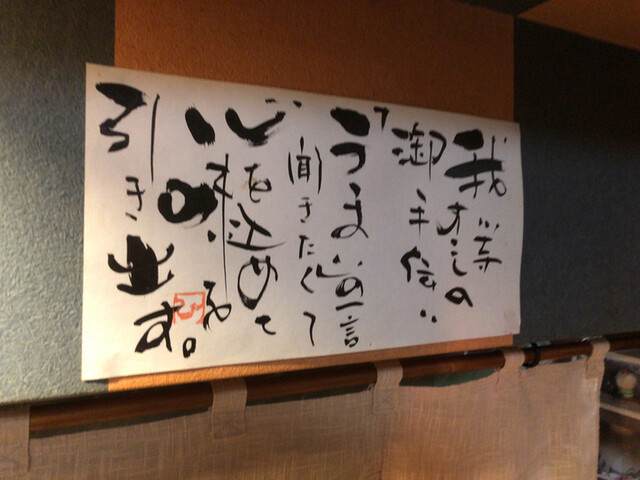 我等 の
御手伝い
「うまい」の一言
聞きたくて
心を込めて
味を
引き出す。